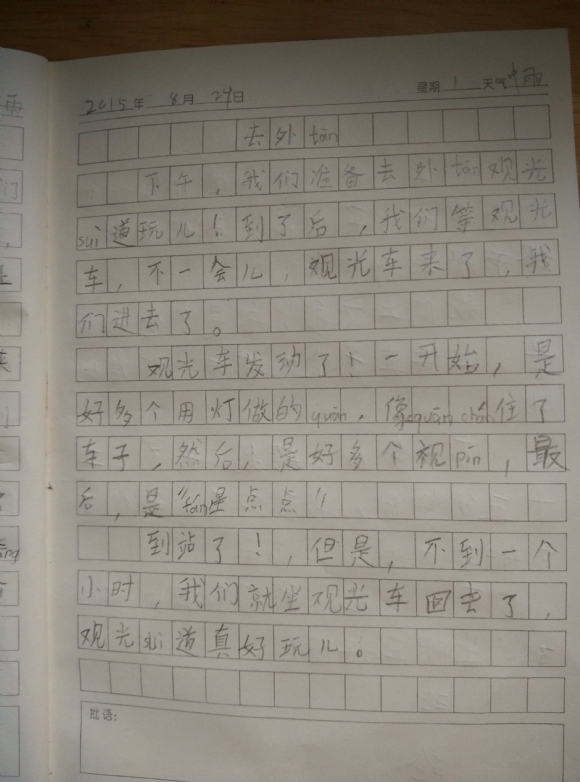 2015年 8月 29日 星期 1 天气 中雨
去外tān
下午，我们准备去外tān观光
suì道玩儿！到了后，我们等观光
车，不一会儿，观光车来了，我
们进去了。
观光车发动了！一开始，是
好多个用灯做的quān，像quān chán住了
车子，然后，是好多个视pín，最
后，是“fán星点点”
到站了！，但是，不到一个
小时，我们就坐观光车回去了，
观光suì道真好玩儿。
批语：